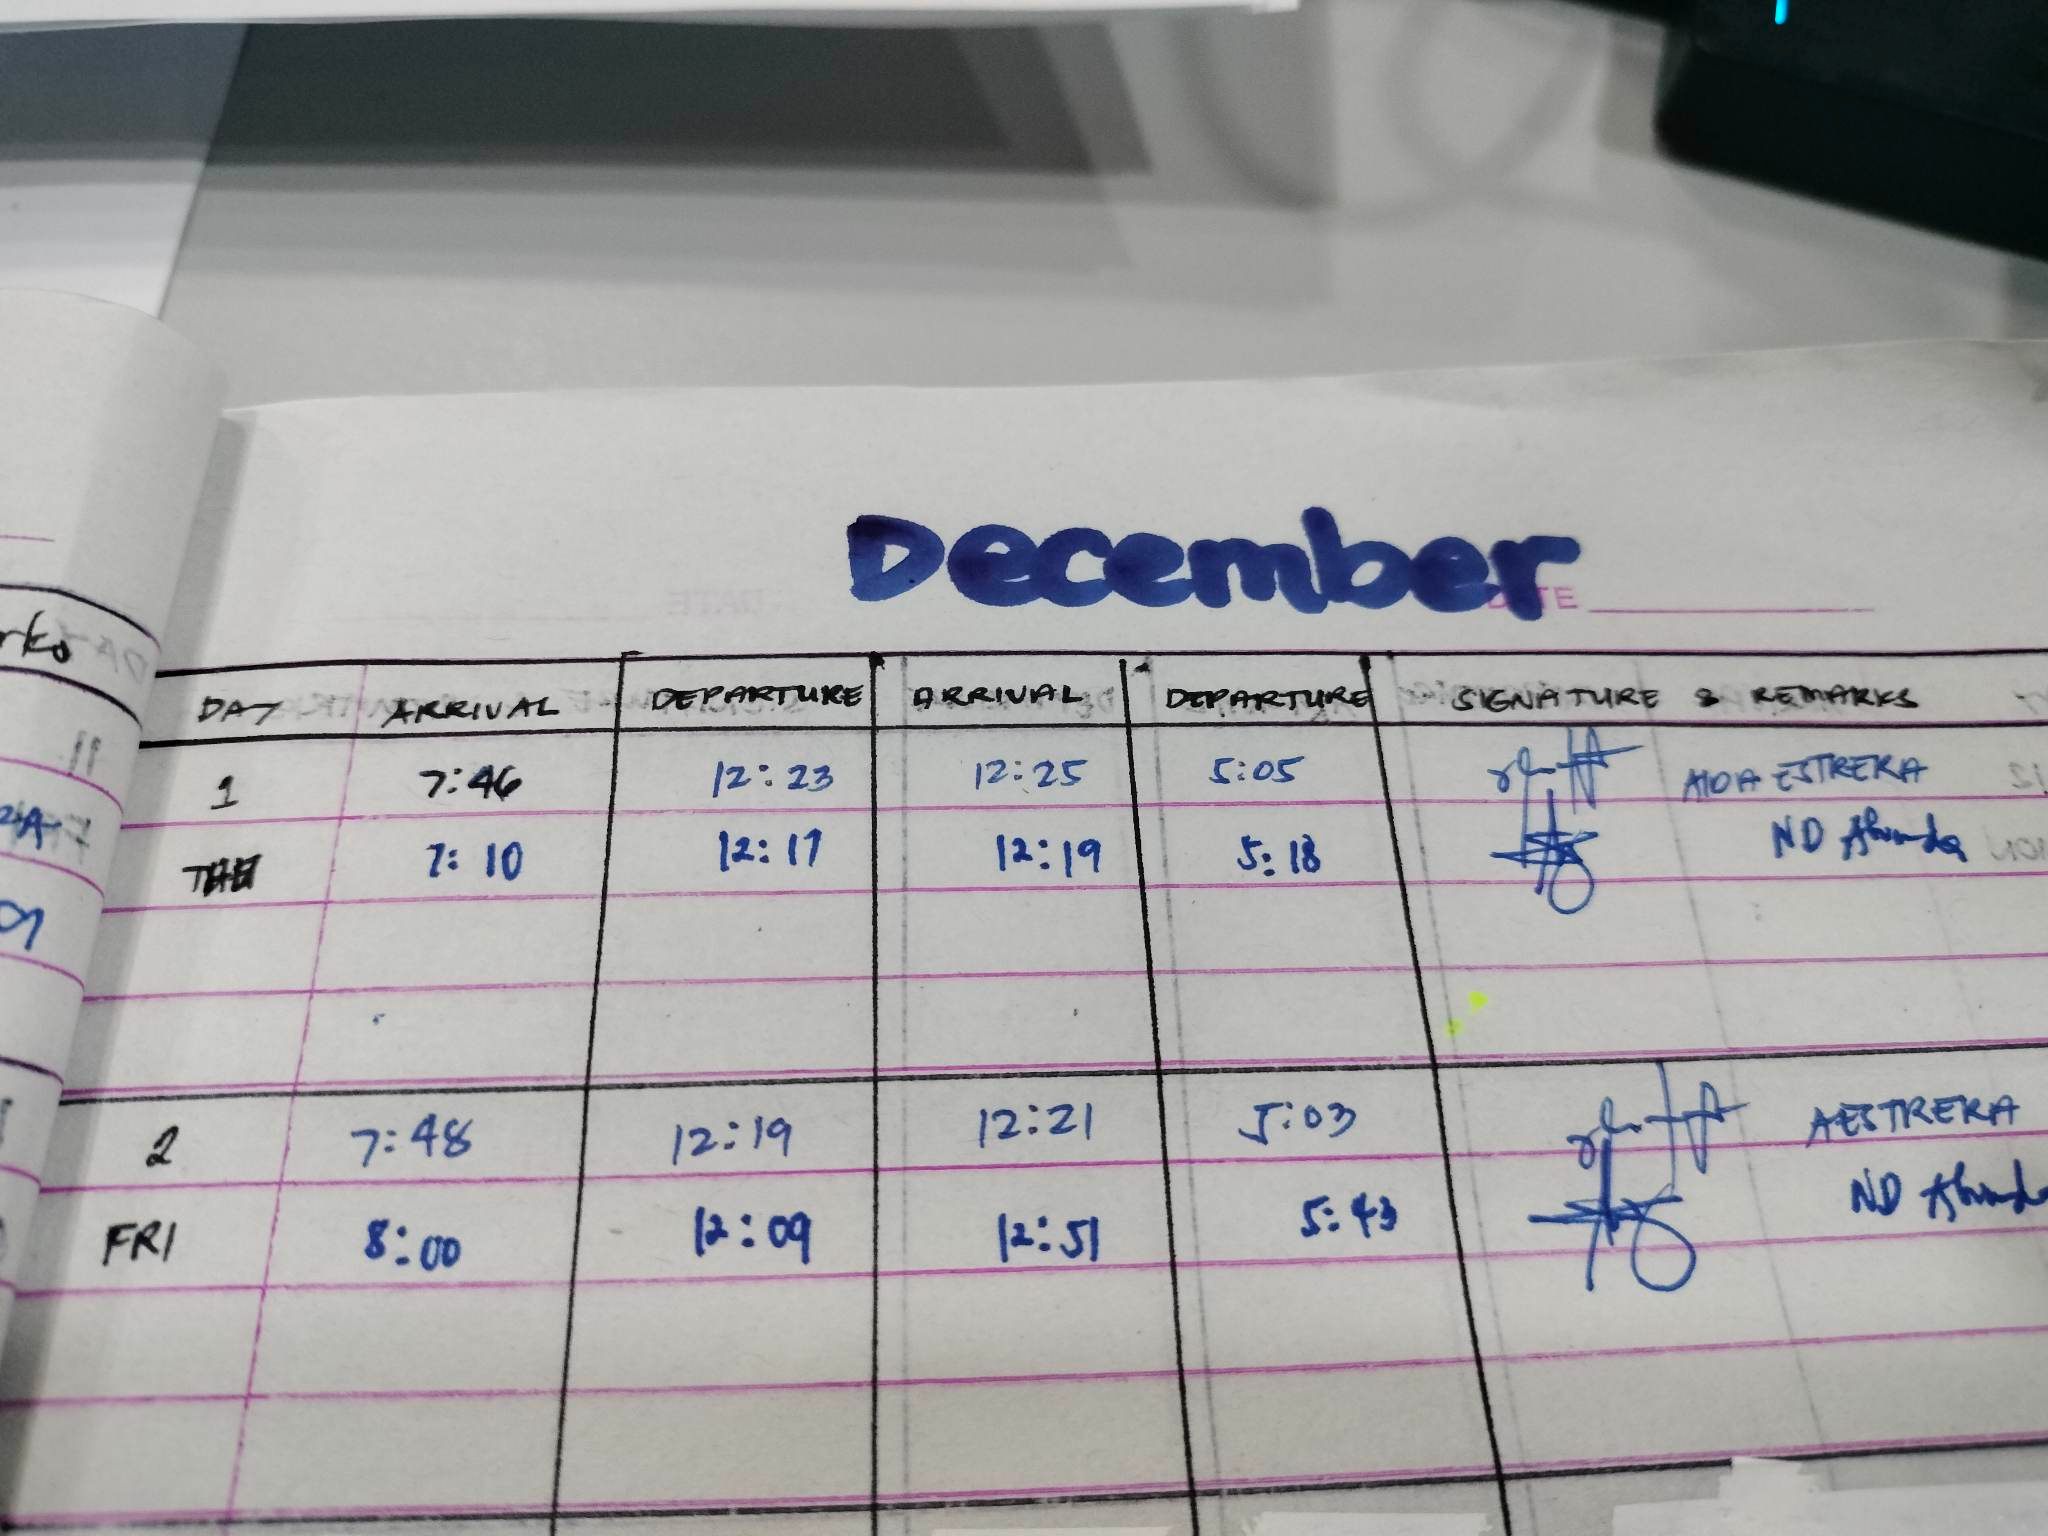 December
DATE
DAY ARRIVAL DEPARTURE ARRIVAL DEPARTURE SIGNATURE & REMARKS
1 7:46 12:23 12:25 5:05 AIDA ESTRERA
7:10 12:17 12:19 5:18 ND
2 7:48 12:19 12:21 5:03 AESTRERA
FRI 8:00 12:09 12:51 5:43 ND